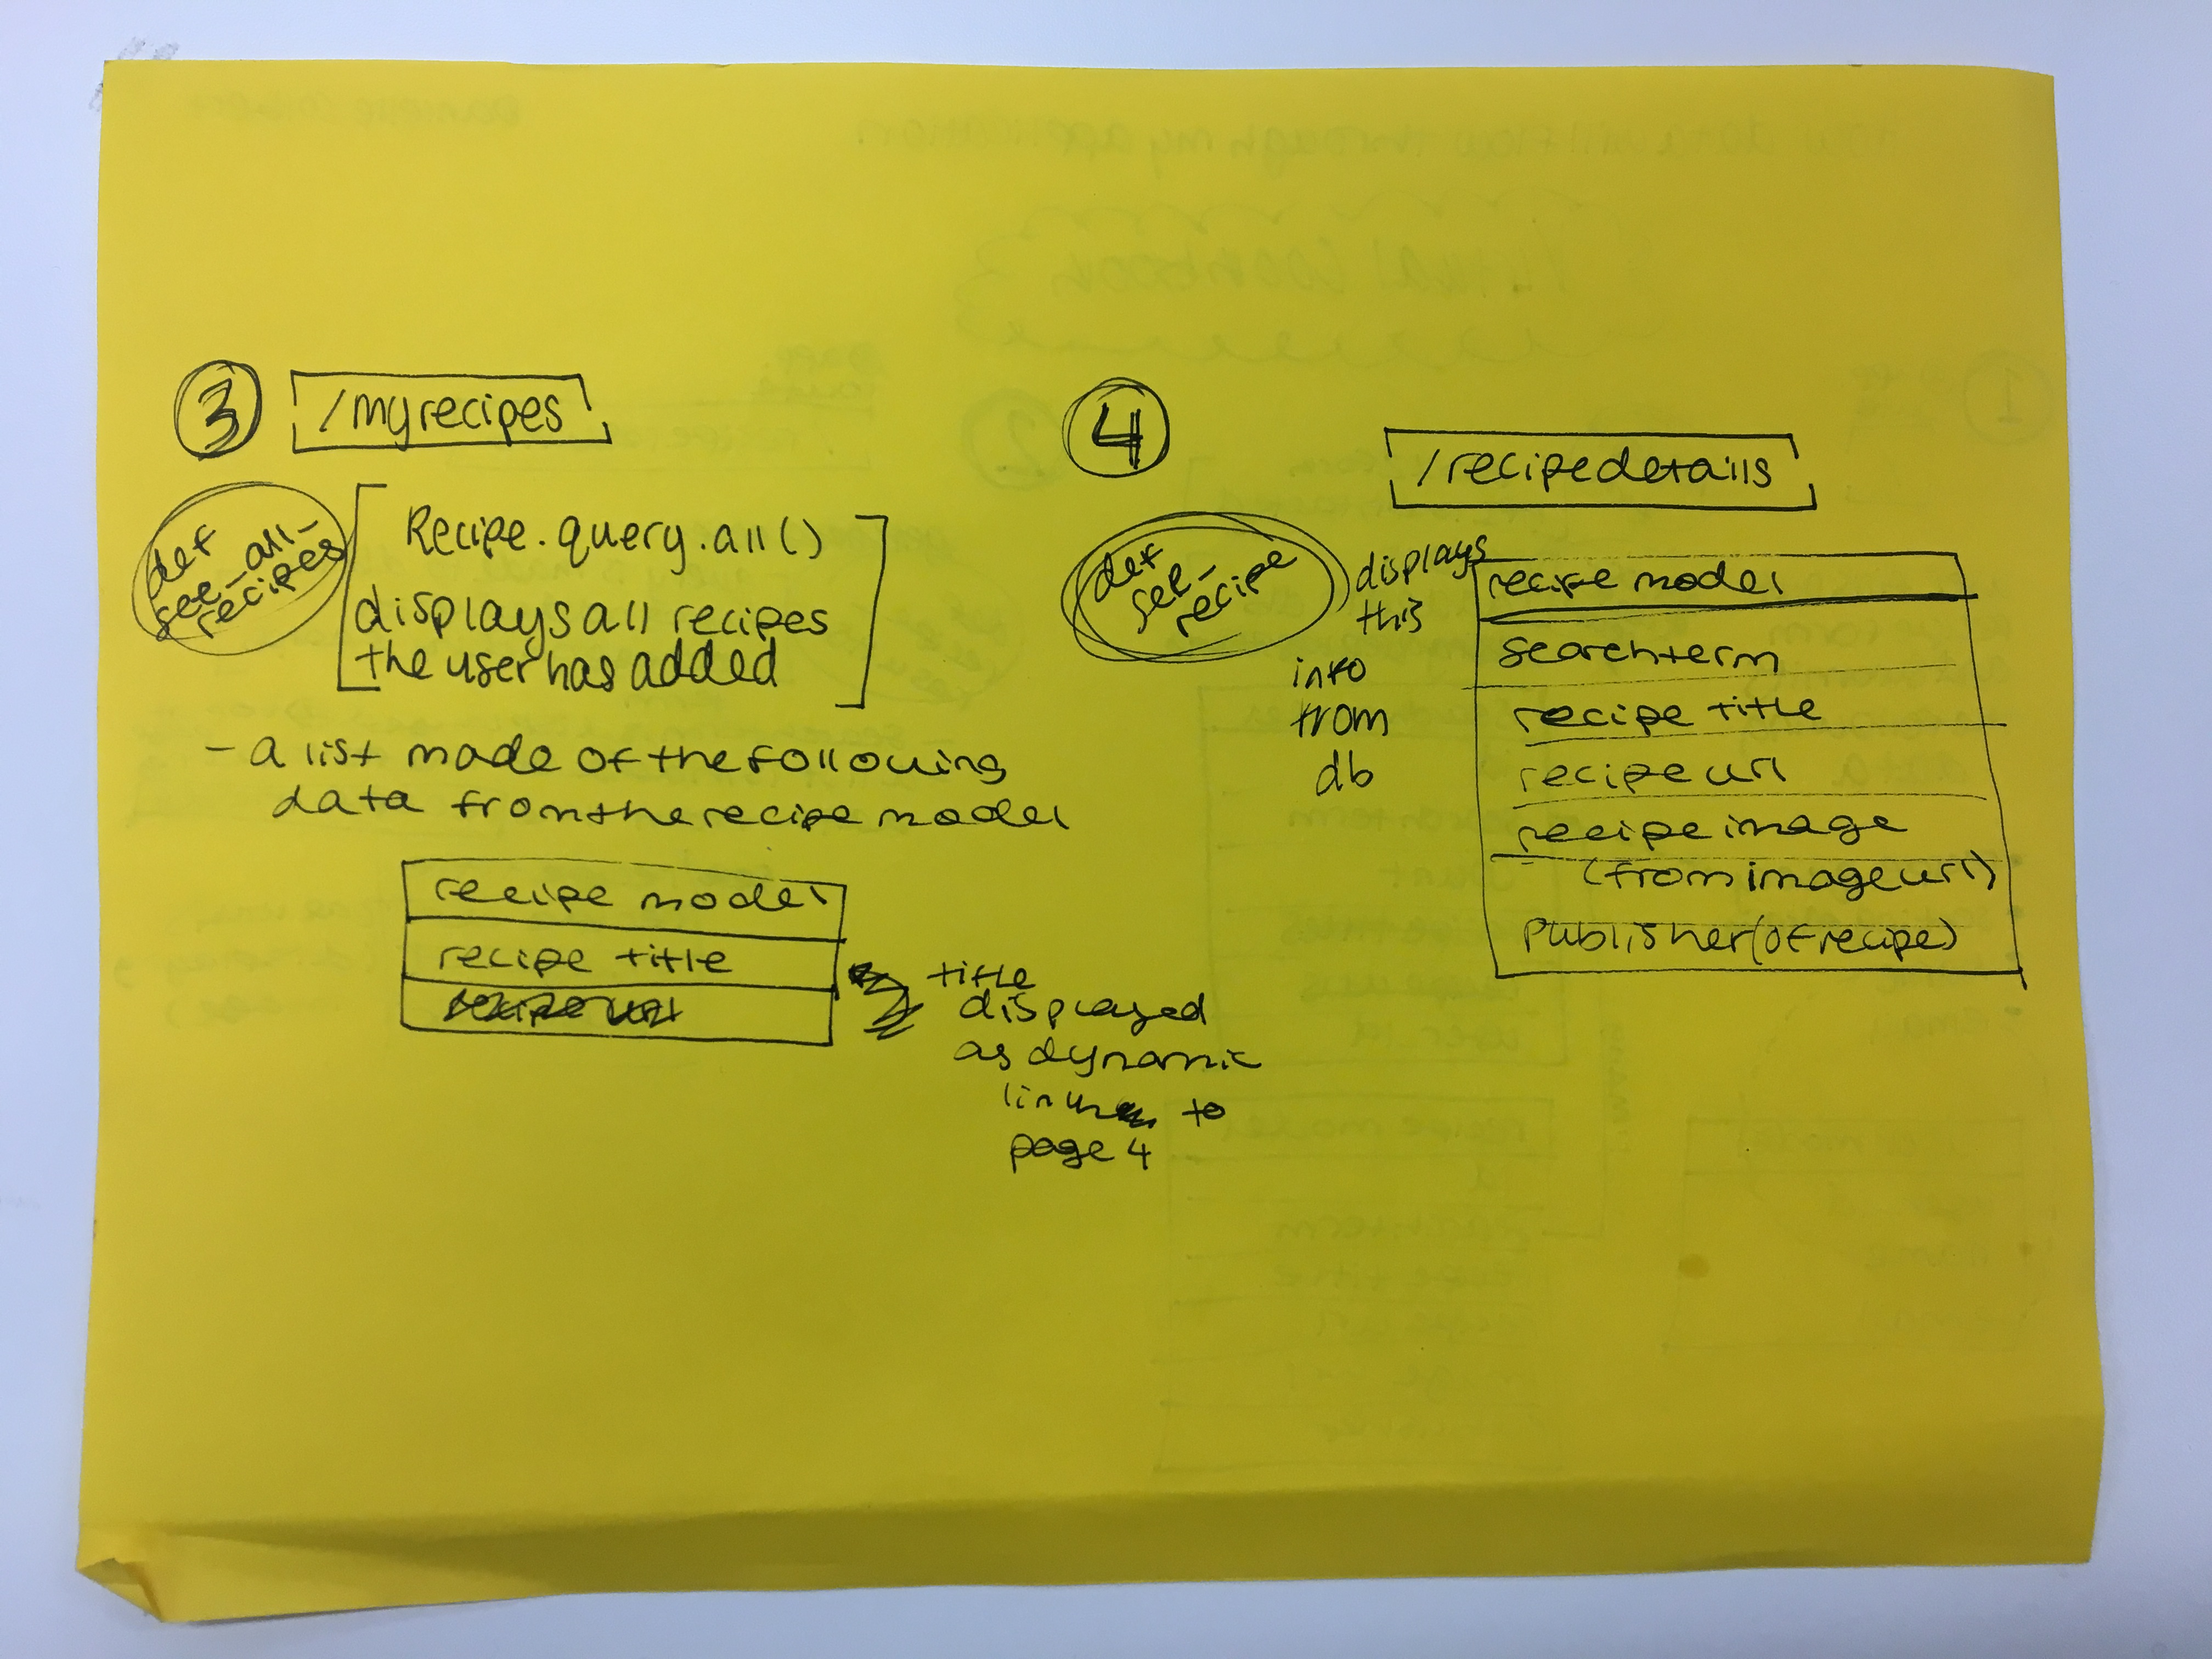 3
/myrecipes
def
see-all-
recipes
Recipe.query.all()
displays all recipes
the user has added
- a list made of the following
data from the recipe model
recipe model
recipe title
title
displayed
as dynamic
to
page 4
4
/recipedetails
def
see-
recipe
displays
this
info
from
db
recipe model
search term
recipe title
recipe url
recipe image
(from image url)
publisher (of recipe)